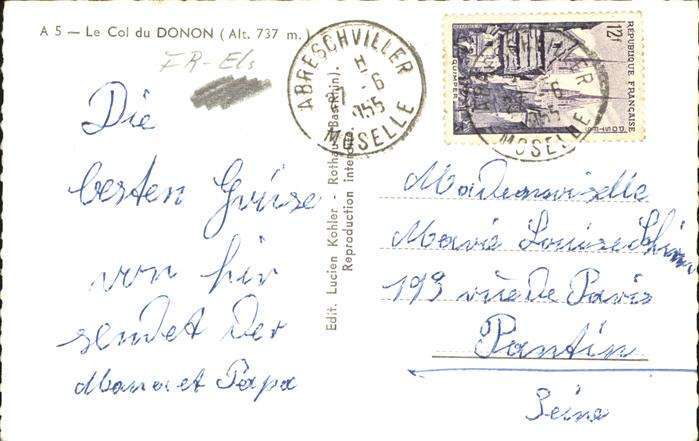 A 5 — Le Col du DONON (Alt. 737 m.)
FR-Els
Die
besten Grüsse
von hir
sendet Der
Mama et Papa
Edit. Lucien Kohler - Rothau (Bas-Rhin).
Reproduction interdite.
ABRESCHVILLER
6
1955
MOSELLE
12F
REPUBLIQUE FRANÇAISE
QUIMPER
POSTES
Mademoiselle
Marie Louise
199 rue De Paris
Pantin
Seine